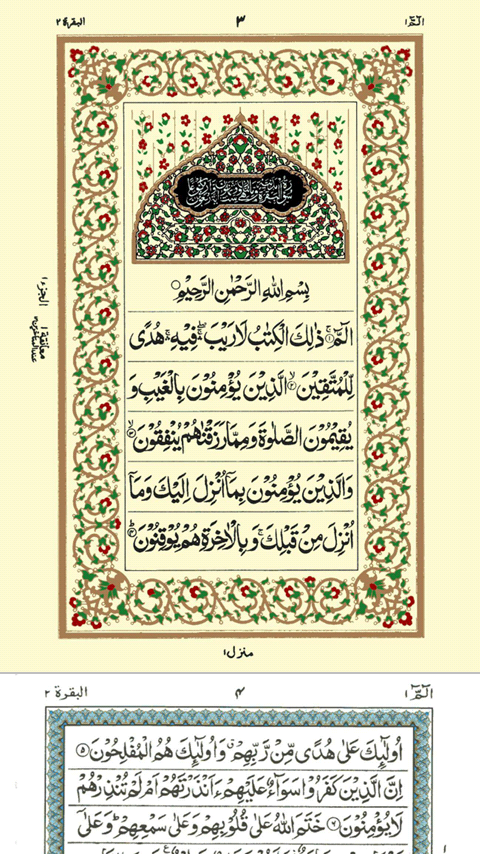 الٓمّٓ ١
٣
البقرة ٢
بِسْمِ اللهِ الرَّحْمٰنِ الرَّحِيْمِ
الٓمّٓ ۚ ١ ذٰلِكَ الْكِتٰبُ لَا رَيْبَ ۛۖ فِيْهِ ۛۚ هُدًى
لِّلْمُتَّقِيْنَ ۙ ٢ الَّذِيْنَ يُؤْمِنُوْنَ بِالْغَيْبِ وَ
يُقِيْمُوْنَ الصَّلٰوةَ وَمِمَّا رَزَقْنٰهُمْ يُنْفِقُوْنَ ۙ ٣
وَالَّذِيْنَ يُؤْمِنُوْنَ بِمَاۤ اُنْزِلَ اِلَيْكَ وَمَاۤ
اُنْزِلَ مِنْ قَبْلِكَ ۚ وَبِالْاٰخِرَةِ هُمْ يُوْقِنُوْنَ ؕ ٤
الجزء ١
معانقة ١
منزل ١
الٓمّٓ ١
٤
البقرة ٢
اُولٰٓئِكَ عَلٰى هُدًى مِّنْ رَّبِّهِمْ ۗ وَاُولٰٓئِكَ هُمُ الْمُفْلِحُوْنَ ٥
اِنَّ الَّذِيْنَ كَفَرُوْا سَوَآءٌ عَلَيْهِمْ ءَاَنْذَرْتَهُمْ اَمْ لَمْ تُنْذِرْهُمْ
لَا يُؤْمِنُوْنَ ٦ خَتَمَ اللهُ عَلٰى قُلُوْبِهِمْ وَعَلٰى سَمْعِهِمْ ؕ وَعَلٰٓى